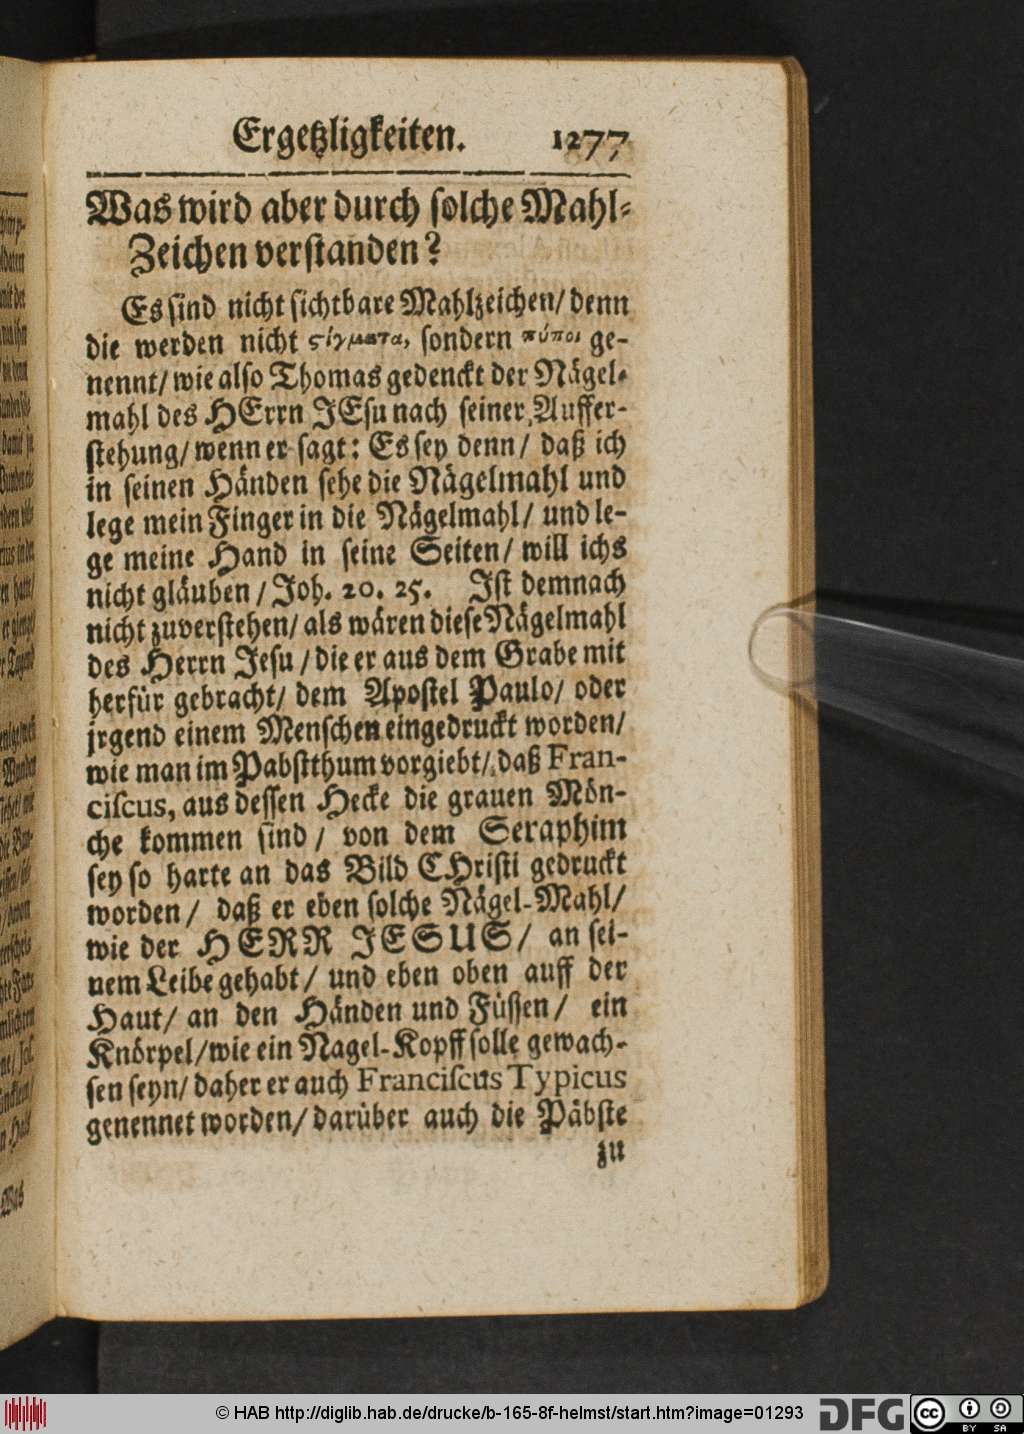 Ergetzligkeiten. 1277
Was wird aber durch solche Mahl-
Zeichen verstanden?
Es sind nicht sichtbare Mahlzeichen/ denn
die werden nicht ςίγματα, sondern πύποι ge-
nennt/ wie also Thomas gedenckt der Nägel-
mahl des HErrn JEsu nach seiner Auffer-
stehung/ wenn er sagt: Es sey denn/ daß ich
in seinen Händen sehe die Nägelmahl und
lege mein Finger in die Nägelmahl/ und le-
ge meine Hand in seine Seiten/ will ichs
nicht gläuben/ Joh. 20. 25. Ist demnach
nicht zuverstehen/ als wären diese Nägelmahl
des Herrn Jesu/ die er aus dem Grabe mit
herfür gebracht/ dem Apostel Paulo/ oder
jrgend einem Menschen eingedruckt worden/
wie man im Pabstthum vorgiebt/ daß Fran-
ciscus, aus dessen Hecke die grauen Mön-
che kommen sind/ von dem Seraphim
sey so harte an das Bild CHristi gedruckt
worden/ daß er eben solche Nägel-Mahl/
wie der HERR JESUS/ an sei-
nem Leibe gehabt/ und eben oben auff der
Haut/ an den Händen und Füssen/ ein
Knörpel/ wie ein Nagel-Kopff solle gewach-
sen seyn/ daher er auch Franciscus Typicus
genennet worden/ darüber auch die Päbste
zu
© HAB http://diglib.hab.de/drucke/b-165-8f-helmst/start.htm?image=01293
DFG
cc BY SA